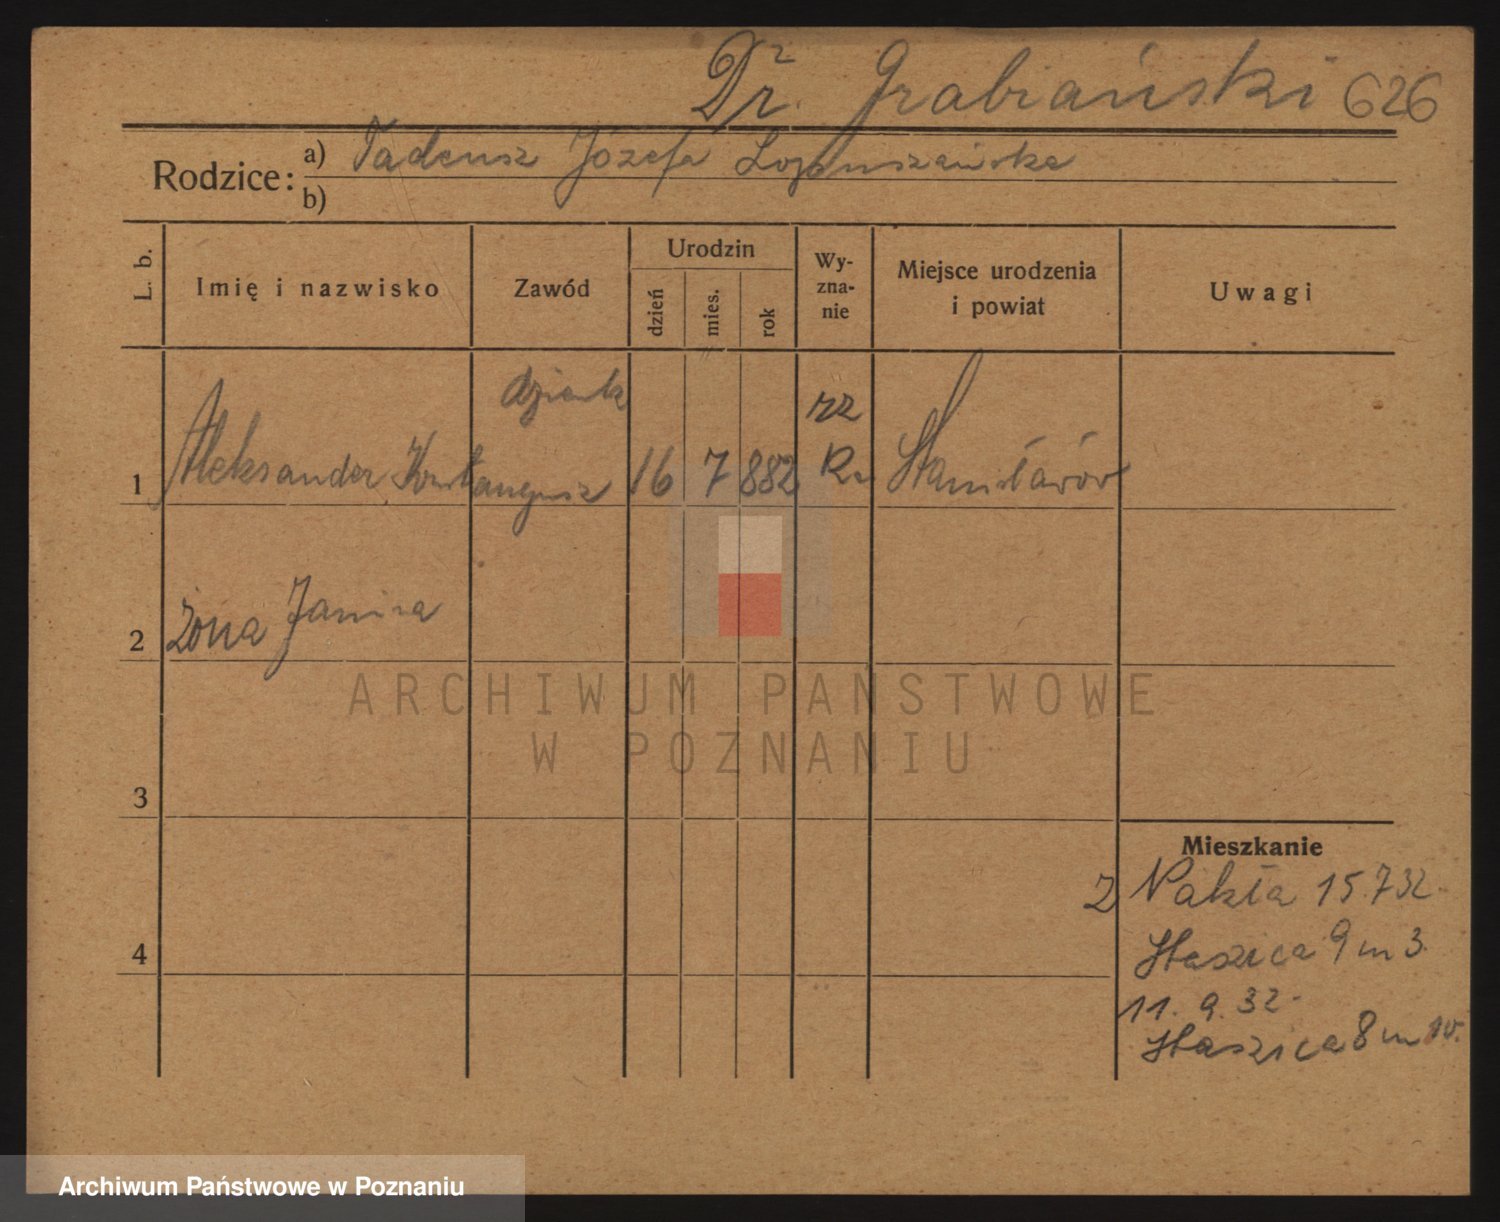 Dr. Grabiański 626
Rodzice: a) Tadeusz Józefa Łopuszańska
b)
L. b. Imię i nazwisko Zawód Urodzin dzień mies. rok Wy-zna-nie Miejsce urodzenia i powiat Uwagi
rz
1 Aleksander 16 7 882 Stanisławów
2 żona Janina
3
4
ARCHIWUM PAŃSTWOWE
W POZNANIU
Mieszkanie
Z Nakła 15.7 32.
Staszica 9 m 3.
11. 9. 32.
Staszica 8 m 10.
Archiwum Państwowe w Poznaniu